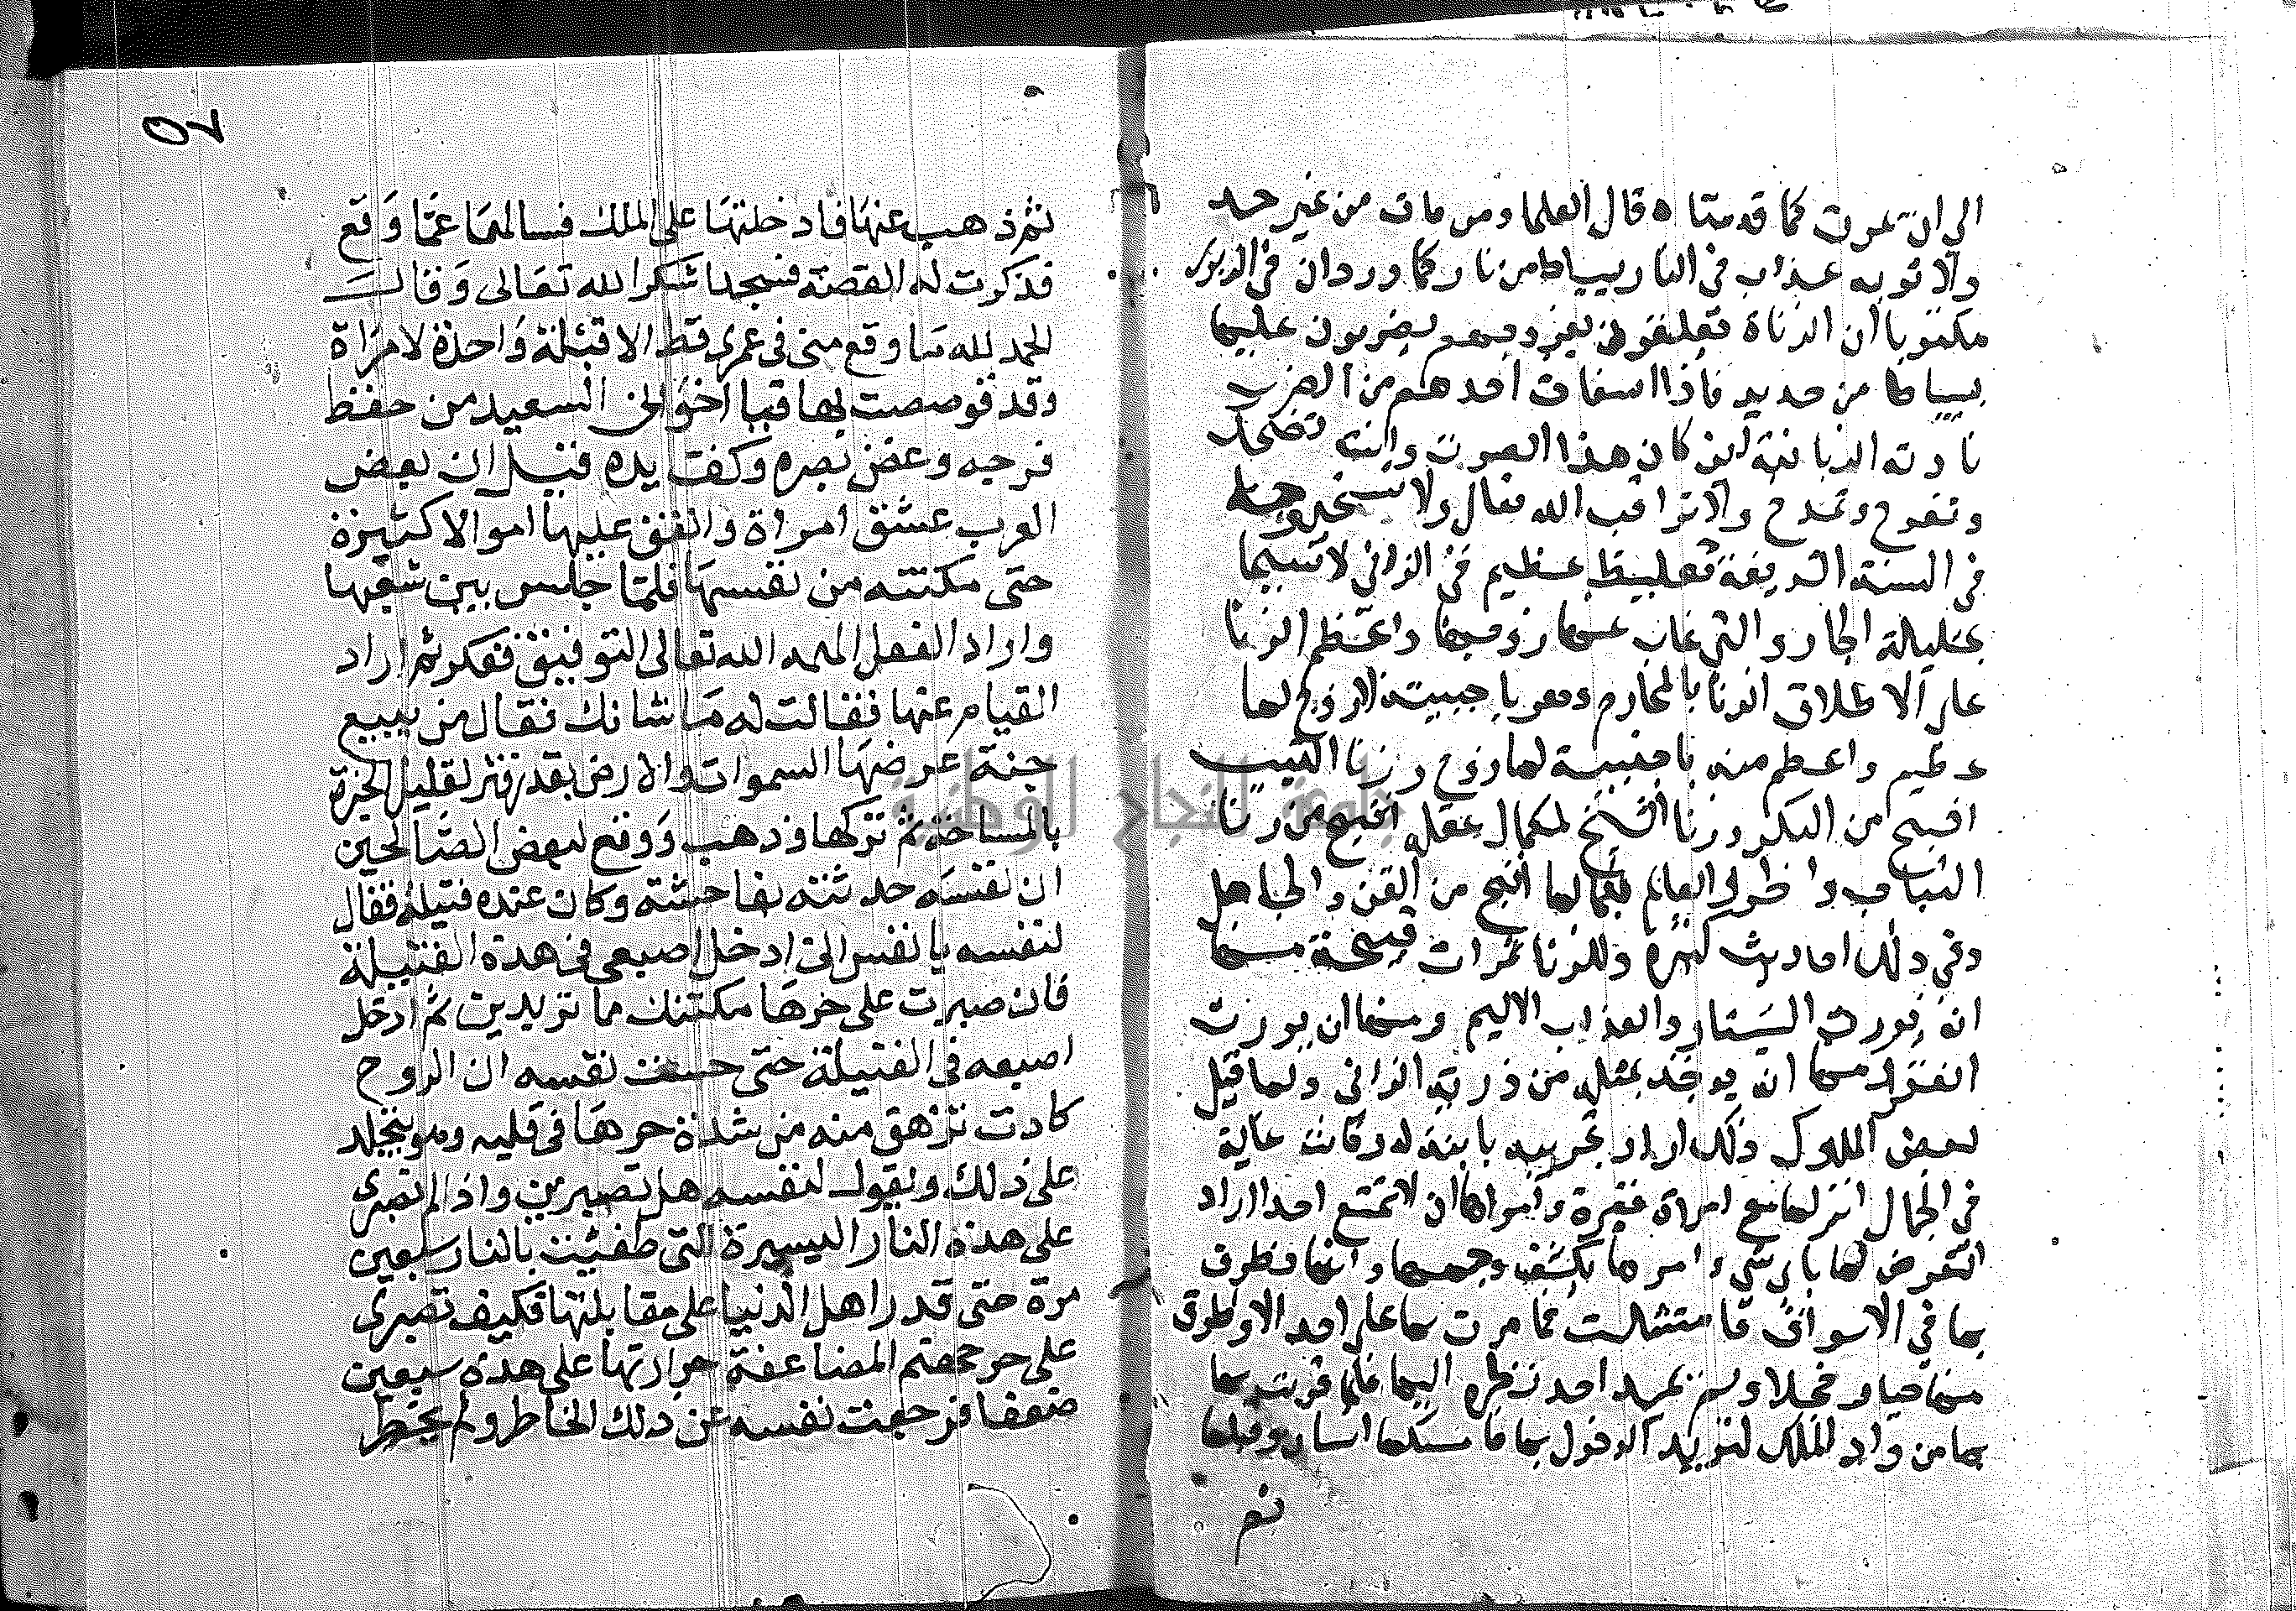 الي ان تموت كما قدمنا ه قال العلما ومن مات من غير حد
ولا توبه عذب في النار بسياط من نار كما ورد ان في الزبور
مكتوبا ان الزناة معلقون بفروجهم يضربون عليها
بسياط من حديد فاذا استغاث احدهم من الضرب
نادته الزبانية اين كان هذا الصوت وانت تضحك
وتفرح وتمرح ولا تراقب الله تعالى ولا تستحي وجا
في السنة الشريفة تغليظ عظيم في الزاني لا سيما
بحليلة الجار والتي غاب عنها زوجها واعظم الزنا
على الاطلاق الزنا بالمحارم وهو باجنبية لا زوج لها
عظيم واعظم منه باجنبية لها زوج وزنا الثيب
اقبح من البكر وزنا الشيخ لكمال عقله اقبح من زنا
الشاب والحر والعالم لكمالهما اقبح من القن والجاهل
وفي ذلك احاديث كثيرة وللزنا ثمرات قبيحة منها
انه يورث النار والعذاب الاليم ومنها ان يورث
الفقر ومنها ان يوخذ بمثله من ذرية الزاني ولما قيل
لبعض الملوك ذلك اراد تجربيه بابنة له وكانت غاية
في الجمال انزلها مع امراة فقيرة وامرها ان لا تمنع احدا اراد
التعرض لها باي شي وامرها بكشف وجهها وانها تطوف
بها في الاسواق فامتثلت فما مرت بها على احد الا واطرق
منها حيا وخجلا ولم يمد احد نظره اليها فلما قربت بها
بها من دار الملك لتريد الدخول بها فامسكها انسان وقبلها
ثم
٥٧
ثم ذهب عنها فادخلتها على الملك فسالها عما وقع
فذكرت له القصة فسجد شكرا لله تعالى وقال
الحمد لله ما وقع مني في عمري قط الا قبلة واحدة لامراة
وقد قوصصت بها فيا اخواني السعيد من حفظ
فرجه وغض بصره وكف يده قيل ان بعض
العرب عشق امراة وانفق عليها اموالا كثيرة
حتى مكنته من نفسها فلما جلس بين شعبها
واراد الفعل الهمه الله تعالى التوفيق ففكر ثم اراد
القيام عنها فقالت له ما شانك فقال من يبيع
جنة عرضها السموات والارض بقدر فتر لقليل الخبرة
بالمساحة ثم تركها وذهب ووقع لبعض الصالحين
ان نفسه حدثته بفاحشة وكان عنده فتيلة فقال
لنفسه يا نفس اني ادخل اصبعي في هذه الفتيلة
فان صبرت على حرها مكنتك مما تريدين ثم ادخل
اصبعه في الفتيلة حتى حست نفسه ان الروح
كادت تزهق منه من شدة حرها في قلبه وهو يتجلد
على ذلك ويقول لنفسه هل تصبرين واذا لم تصبري
على هذه النار اليسيرة التي طفئت بالنار سبعين
مرة حتى قدر اهل الدنيا على مقابلتها فكيف تصبري
على حر جهنم المضاعفة حرارتها على هذه سبعين
ضعفا فرجعت نفسه عن ذلك الخاطر ولم يخطر
جامعة النجاح الوطنية